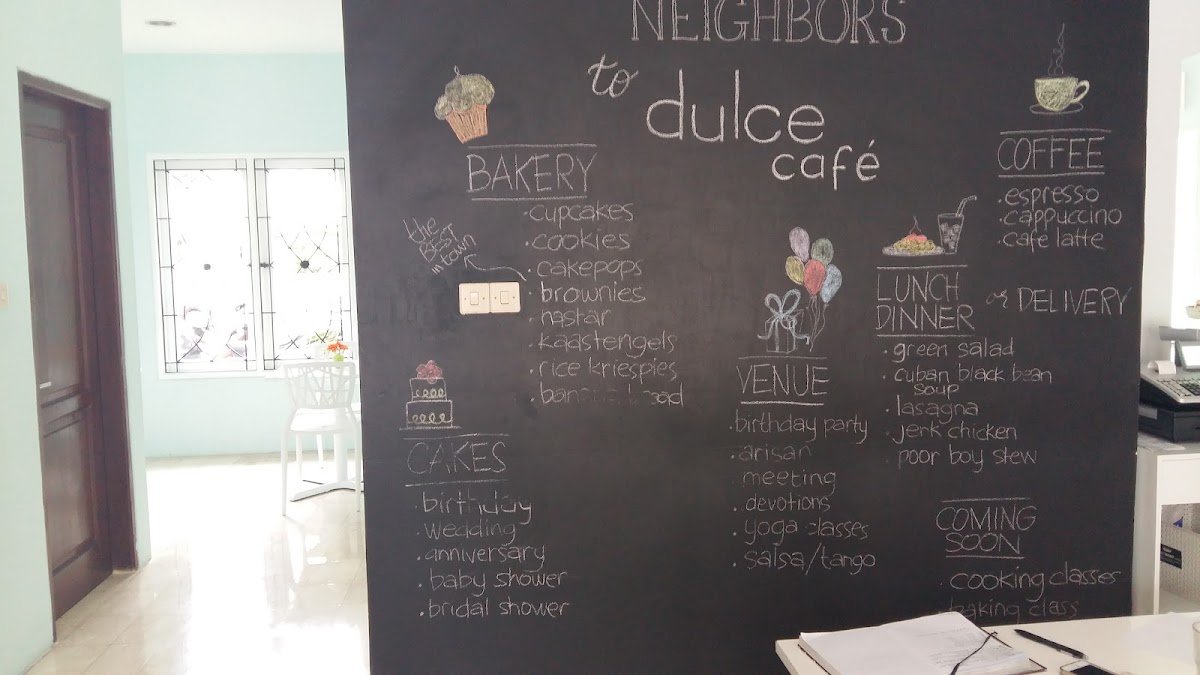 NEIGHBORS
to dulce
café
BAKERY
.cupcakes
.cookies
.cakepops
.brownies
.nastar
.kaastengels
.rice kriespies
the
BEST
in town
CAKES
.birthday
.wedding
.anniversary
.baby shower
.bridal shower
VENUE
.birthday party
.arisan
.meeting
.devotions
.yoga classes
.salsa/tango
COFFEE
.espresso
.cappuccino
.cafe latte
LUNCH
DINNER
or DELIVERY
.green salad
.cuban black bean
soup
.lasagna
.jerk chicken
.poor boy stew
COMING
SOON
.cooking classes
baking class